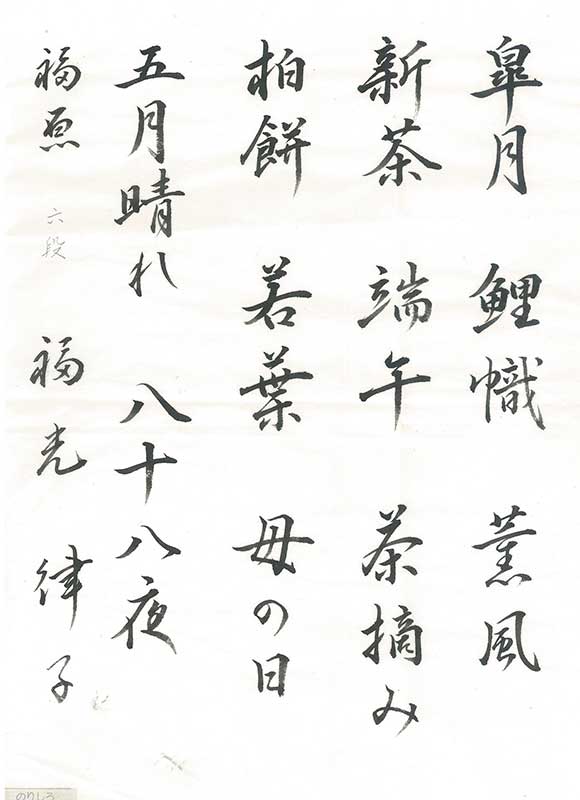 皐月 鯉幟 薫風
新茶 端午 茶摘み
柏餅 若葉 母の日
五月晴れ 八十八夜
福原 六段 福光 律子
のりしろ